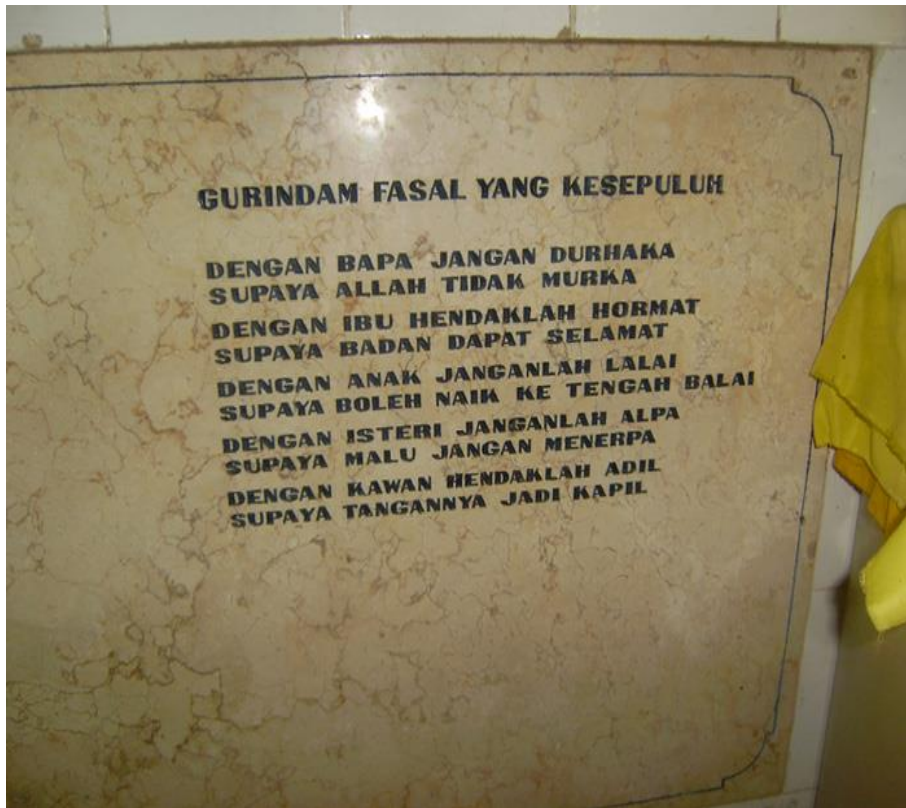 GURINDAM FASAL YANG KESEPULUH
DENGAN BAPA JANGAN DURHAKA
SUPAYA ALLAH TIDAK MURKA
DENGAN IBU HENDAKLAH HORMAT
SUPAYA BADAN DAPAT SELAMAT
DENGAN ANAK JANGANLAH LALAI
SUPAYA BOLEH NAIK KE TENGAH BALAI
DENGAN ISTERI JANGANLAH ALPA
SUPAYA MALU JANGAN MENERPA
DENGAN KAWAN HENDAKLAH ADIL
SUPAYA TANGANNYA JADI KAPIL